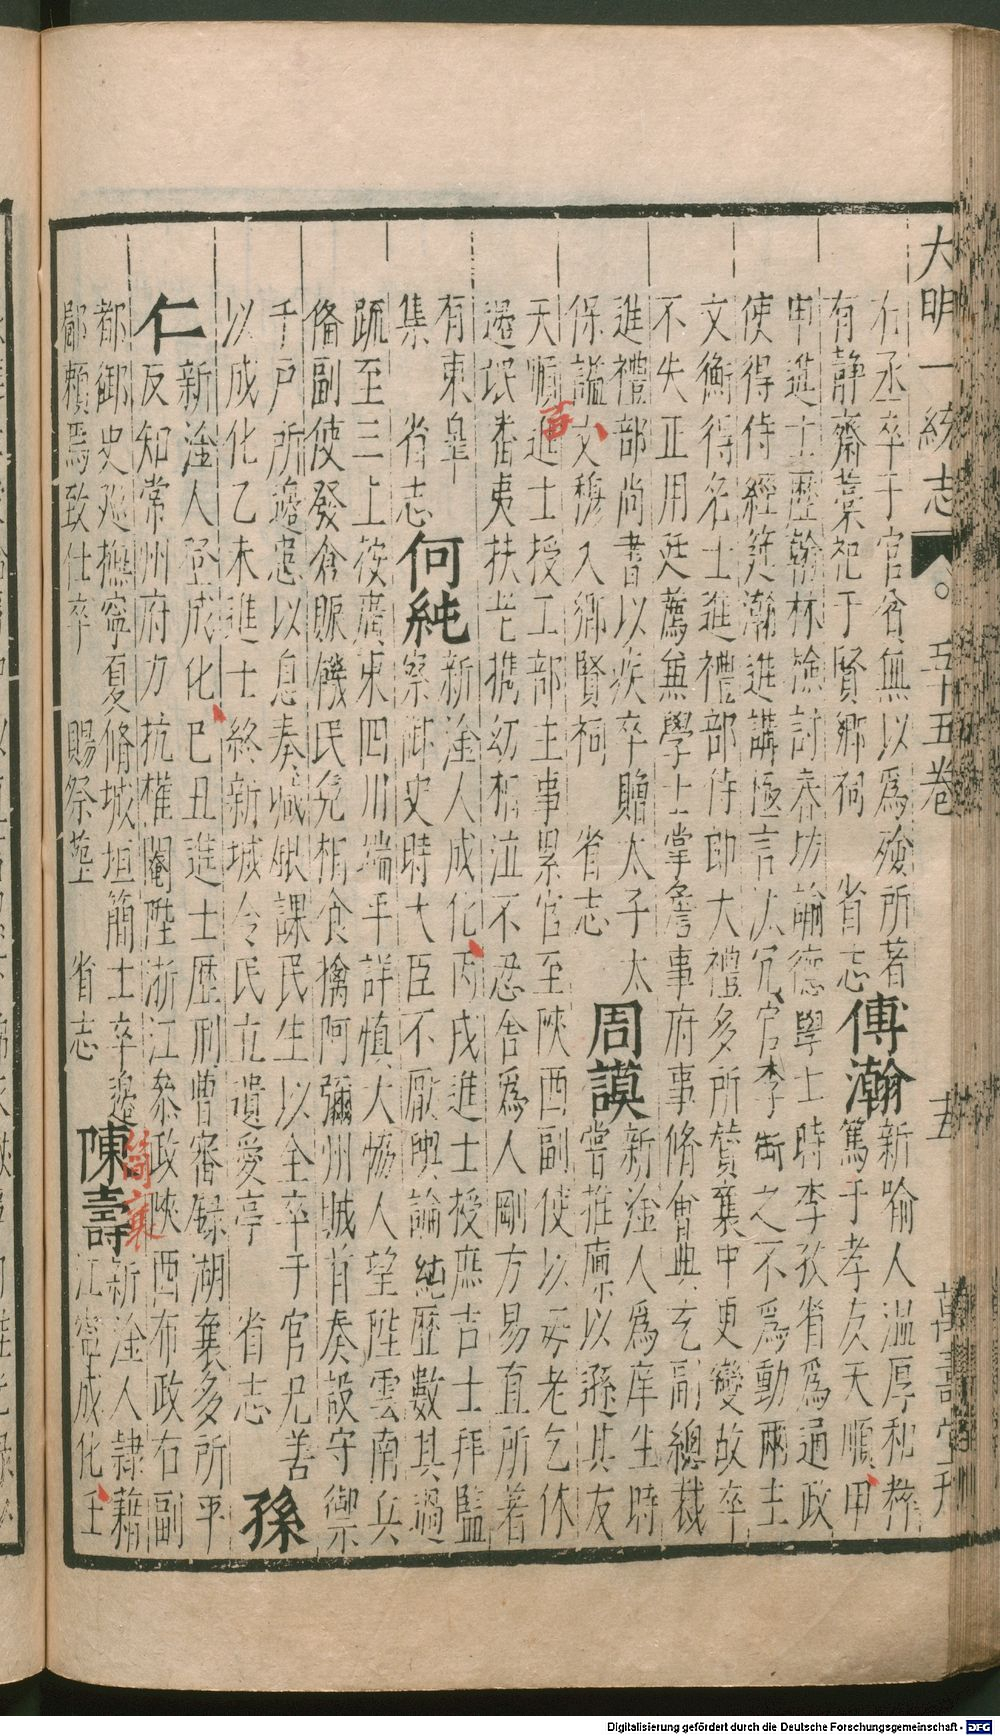 大明一統志 五十五卷 五 萬壽堂刊
右丞卒于官貧無以爲殮所著
有靜齋藁祀于賢鄉祠 省志 傅瀚 新喻人溫厚和粹
篤于孝友天順甲
申進士歷翰林檢討春坊諭德學士時李孜省爲通政
使得侍經筵瀚進講極言汰冗官李銜之不爲動兩主
文衡得名士進禮部侍郎大禮多所贊襄中更變故卒
不失正用廷薦無學士掌詹事府事脩會典充副總裁
進禮部尚書以疾卒贈太子太
保謚文穆入鄉賢祠 省志 周謨 新淦人爲庠生時
嘗推廩以遜其友
天順進士授工部主事累官至陝西副使以母老乞休
邊氓番夷扶老攜幼相泣不忍舍爲人剛方易直所著
有東皐
集 省志 何純 新淦人成化丙戌進士授庶吉士拜監
察御史時大臣不厭輿論純歷數其過
疏至三上按廣東四川端平詳慎大協人望陞雲南兵
備副使發倉賑饑民免相食擒阿彌州賊首奏設守禦
千戶所邊患以息奏減銀課民生以全卒于官兄善
以成化乙未進士終新城令民立遺愛亭 省志 孫
仁 新淦人登成化己丑進士歷刑曹審録湖襄多所平
反知常州府力抗權閹陞浙江叅政陝西布政右副
都御史廵撫寧夏脩城垣簡士卒邊
鄙賴焉致仕卒 賜祭塟 省志 陳壽 新淦人隷藉
江寧成化壬
簡襄
Digitalisierung gefördert durch die Deutsche Forschungsgemeinschaft - DFG